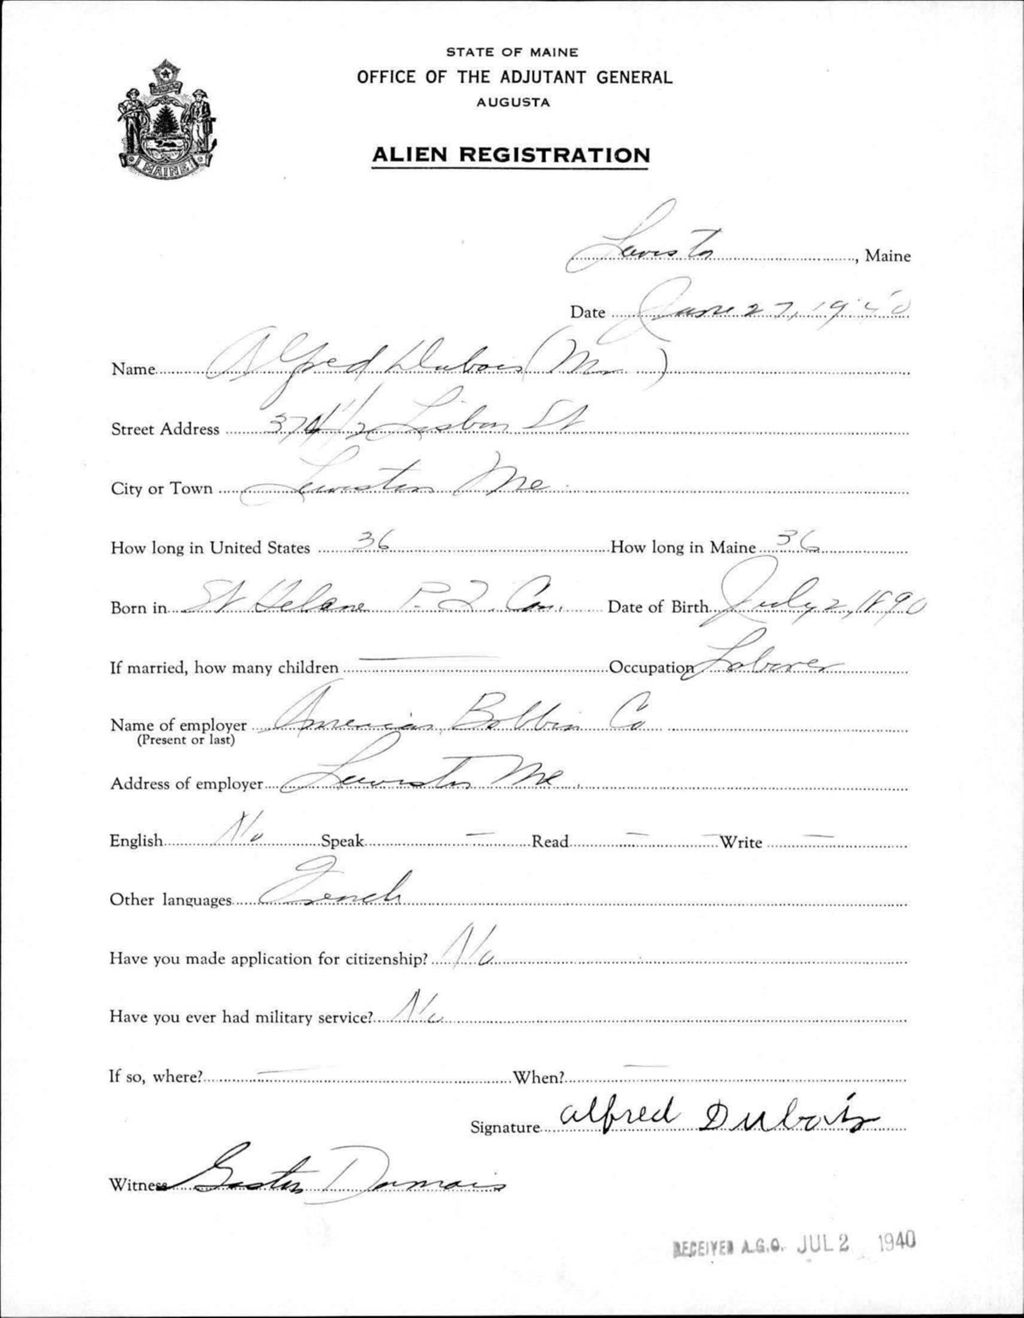 STATE OF MAINE
OFFICE OF THE ADJUTANT GENERAL
AUGUSTA
ALIEN REGISTRATION
MAINE
Lewiston, Maine
Date June 27, 1940
Name Alfred Dubois (Mr.)
Street Address 374 1/2 Lisbon St
City or Town Lewiston Me.
How long in United States 36 How long in Maine 36
Born in St Helane P. Q. Can. Date of Birth July 2, 1890
If married, how many children — Occupation Laborer
Name of employer American Bobbin Co
(Present or last)
Address of employer Lewiston Me.
English No Speak — Read — Write —
Other languages French
Have you made application for citizenship? No
Have you ever had military service? No
If so, where? — When? —
Signature Alfred Dubois
Witness Dumais
RECEIVED A.G.O. JUL 2 1940